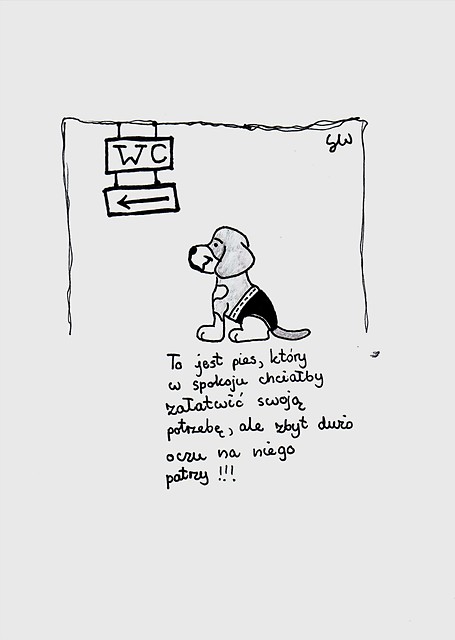 WC
To jest pies, który
w spokoju chciałby
załatwić swoją
potrzebę, ale zbyt dużo
oczu na niego
patrzy !!!